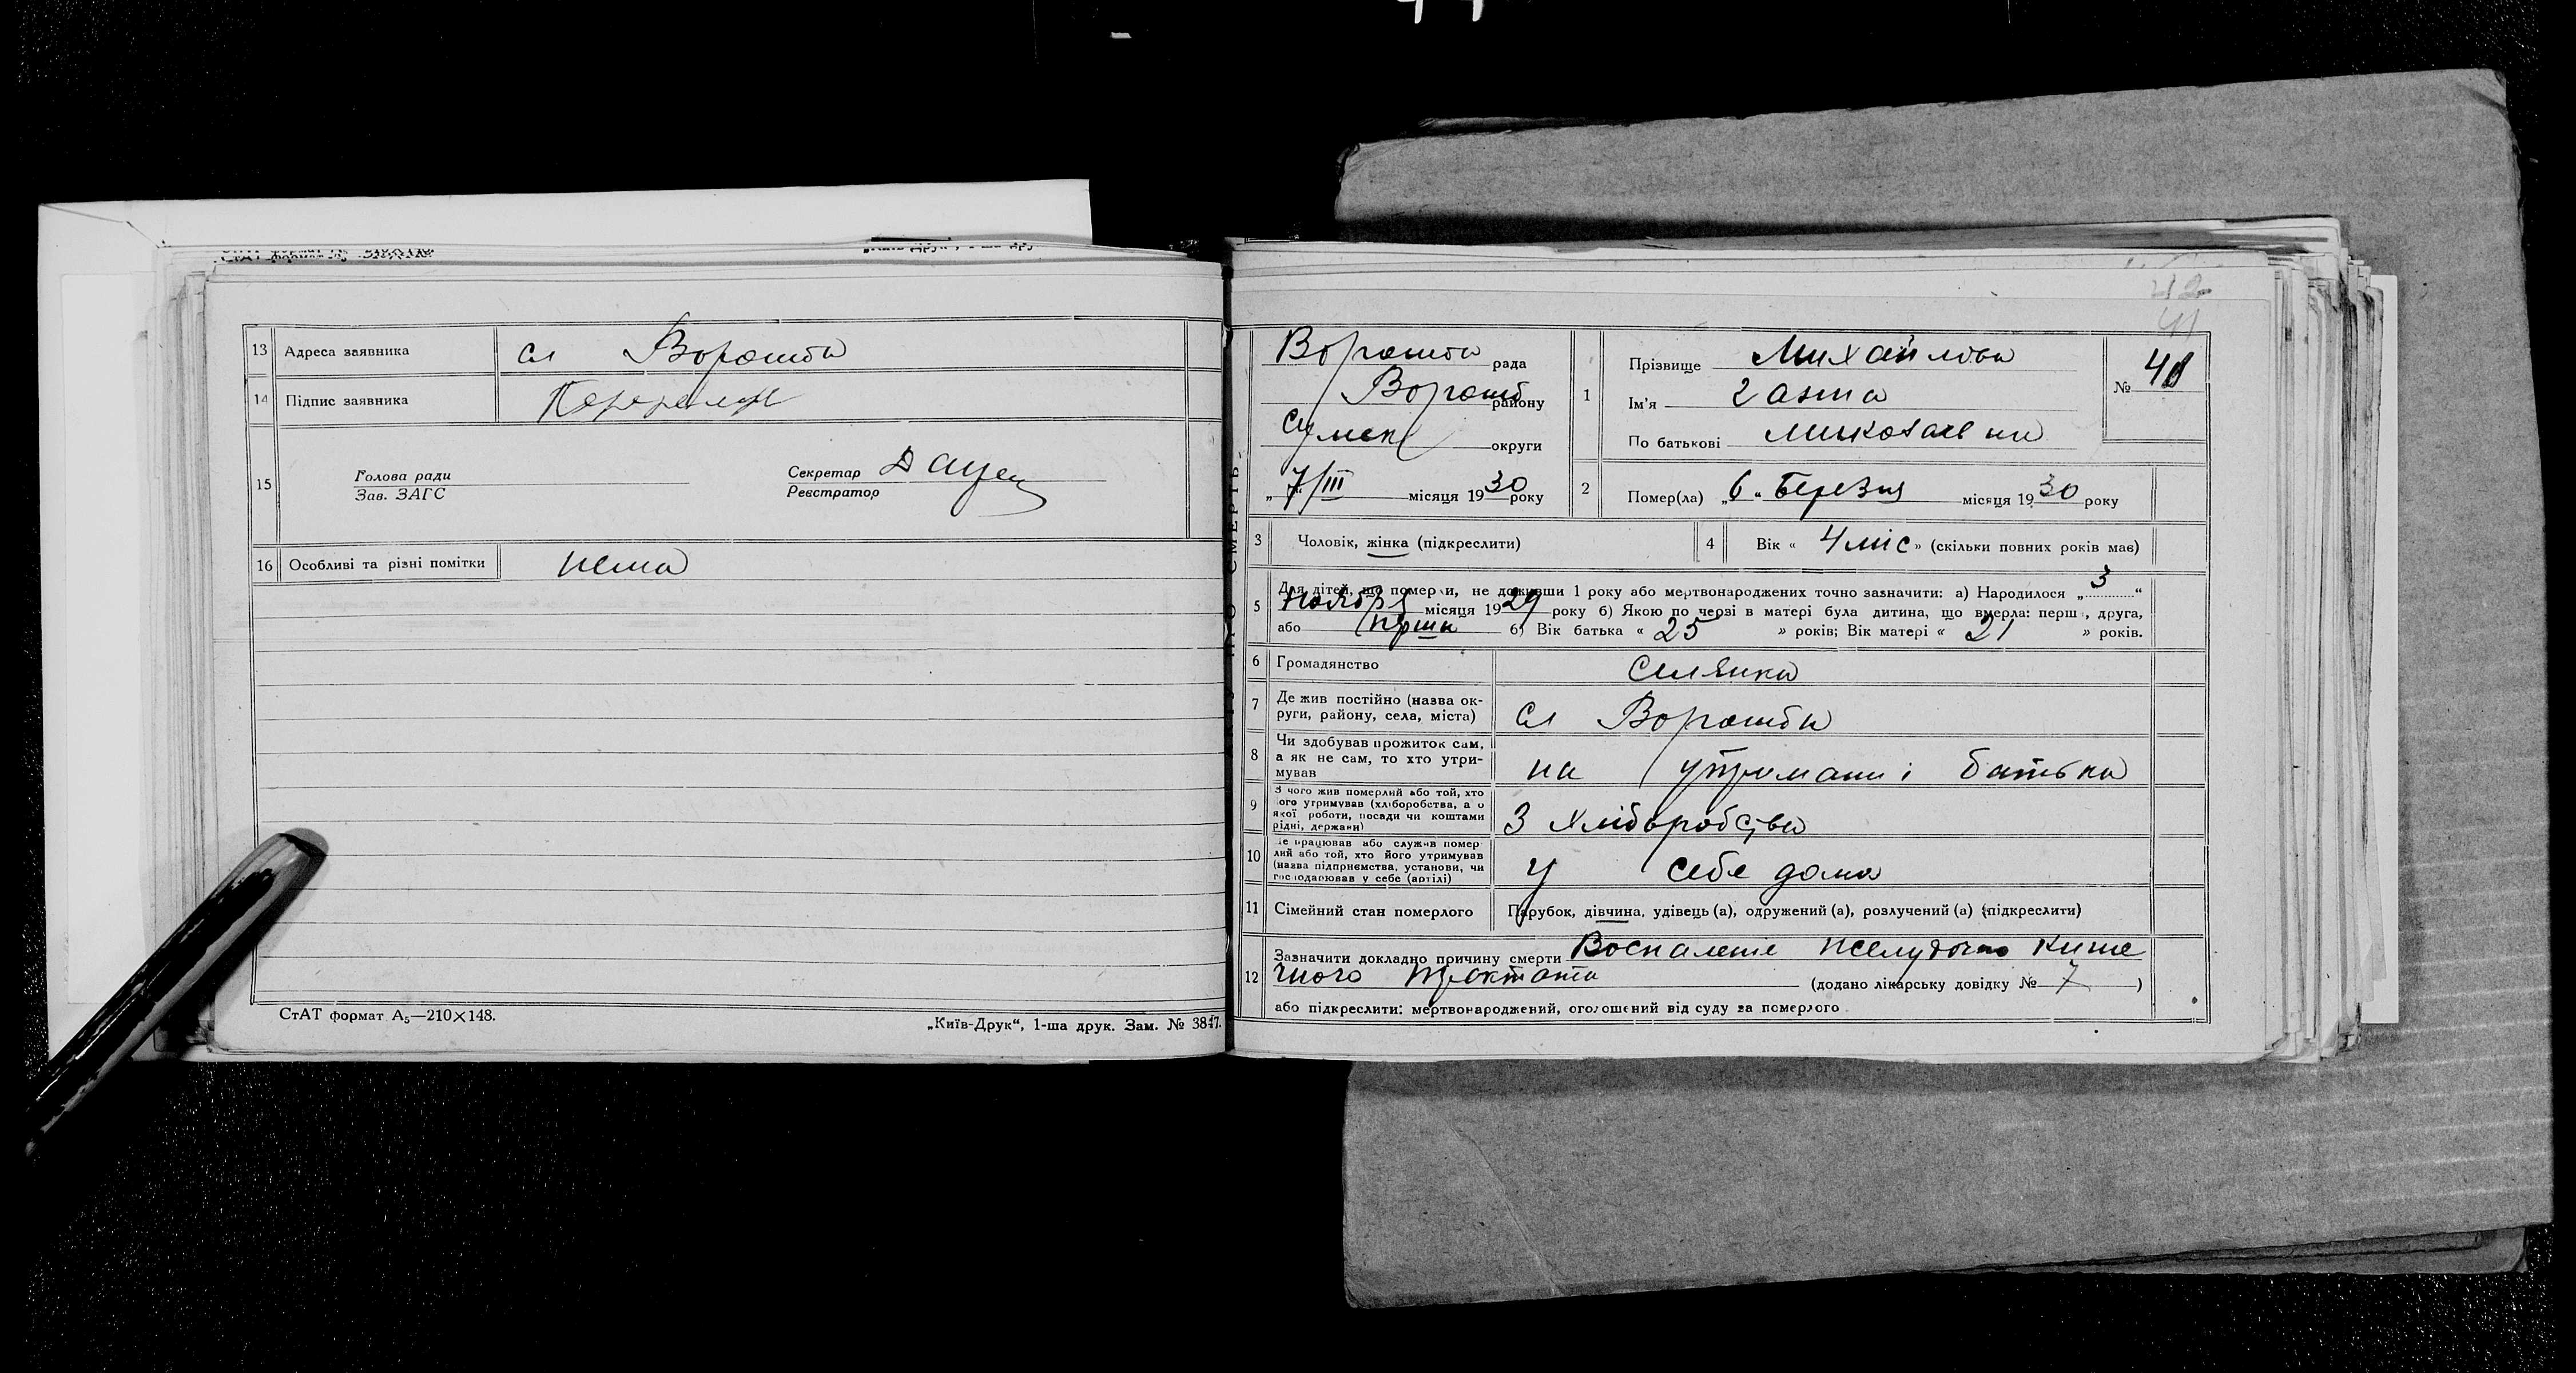 13 Адреса заявника сл Ворожба
14 Підпис заявника
15 Голова ради
Зав. ЗАГС
Секретар
Реєстратор
16 Особливі та різні помітки нема
СтАТ формат А5—210×148.
„Київ-Друк“, 1-ша друк. Зам. № 3847.
42
41
Ворожба рада
Ворожб району
Сумск округи
„ 7/III місяця 1930 року
1 Прізвище Михайлова
Ім'я
По батькові Миколаевна
№ 41
2 Помер(ла) „6“ Березня місяця 1930 року
3 Чоловік, жінка (підкреслити)
4 Вік « 4 міс » (скільки повних років має)
5 Для дітей, що померли, не доживши 1 року або мертвонароджених точно зазначити: а) Народилося „ 3 “
Ноября місяця 1929 року б) Якою по черзі в матері була дитина, що вмерла: перша, друга,
або перша б) Вік батька « 25 » років; Вік матері « 21 » років.
6 Громадянство Селянка
7 Де жив постійно (назва округи, району, села, міста) сл Ворожба
8 Чи здобував прожиток сам,
а як не сам, то хто утри-
мував на утримані батька
9 З чого жив померлий або той, хто
його утримував (хліборобства, а о
якої роботи, посади чи коштами
рідні, держави) З хліборобства
10 Де працював або служив помер
лий або той, хто його утримував
(назва підприємства, установи, чи
господарював у себе (артілі) у себе дома
11 Сімейний стан померлого Парубок, дівчина, удівець (а), одружений (а), розлучений (а) (підкреслити)
12 Зазначити докладно причину смерти Воспаление желудочно кише
чного трактата (додано лікарську довідку № 7 )
або підкреслити: мертвонароджений, оголошений від суду за померлого